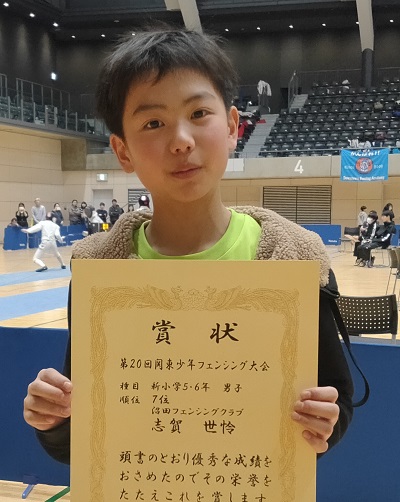 賞状
第20回関東少年フェンシング大会
種目 新小学5・6年 男子
順位 7位
沼田フェンシングクラブ
志賀 世怜
頭書のとおり優秀な成績を
おさめたのでその栄誉を
たたえこれを賞します
4